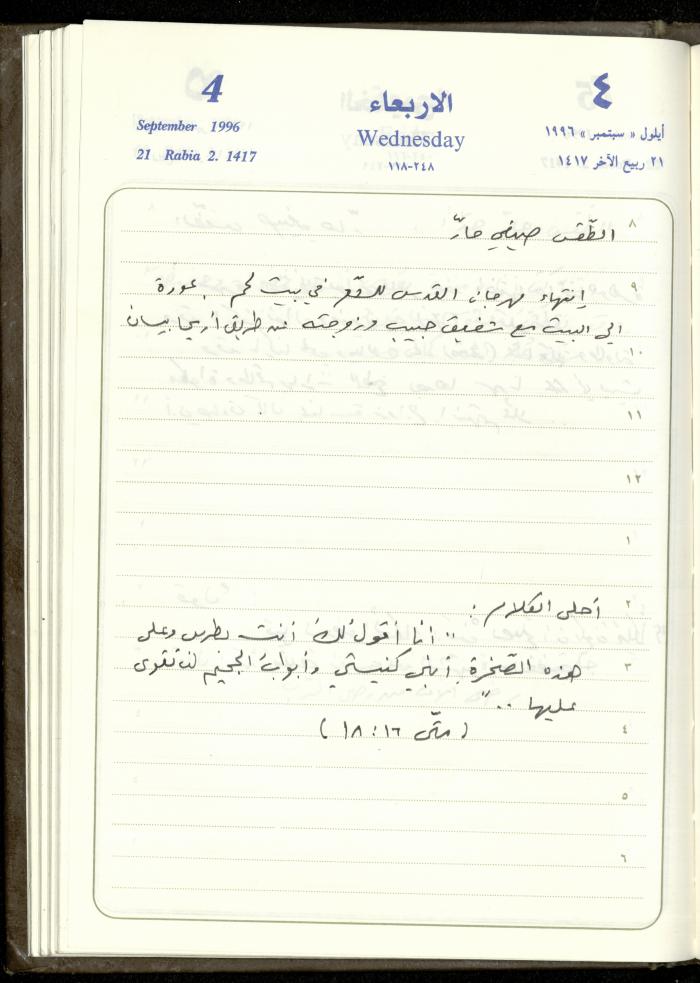 4
الاربعاء
٤
September 1996
Wednesday
أيلول « سبتمبر » ١٩٩٦
21 Rabia 2. 1417
٢٤٨-١١٨
٢١ ربيع الآخر ١٤١٧
٨
الطّقس صيفي حارّ
٩
إنتهاء مهرجان القدس للشّعر في بيت لحم . عودة
الى البيت مع شفيق حبيب وزوجته عن طريق أريحا بيسان
١٠
١١
١٢
١
٢
أحلى الكلام :
" أنا أقول لك أنت بطرس وعلى
٣
هذه الصّخرة أبني كنيستي وأبواب الجحيم لن تقوى
عليها .. "
٤
( متّى ١٦ : ١٨ )
٥
٦